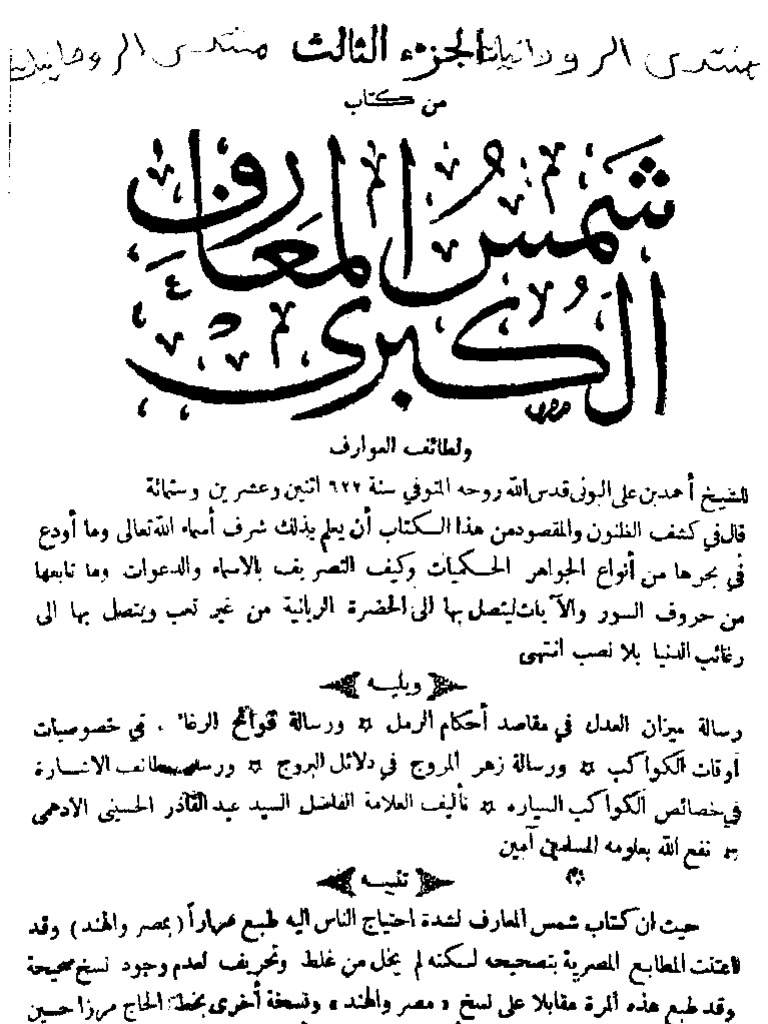 منتدى الروحانيات الجزء الثالث منتدى الروحانيات
من كتاب
شمس المعارف
الكبرى
ولطائف العوارف
للشيخ أحمد بن على البونى قدس الله روحه المتوفي سنة ٦٢٢ اثنين وعشرين وستمائة
قال في كشف الظنون والمقصود من هذا الكتاب أن يعلم بذلك شرف أسماء الله تعالى وما أودع
في بحرها من أنواع الجواهر الحكميات وكيف التصريف بالاسماء والدعوات وما تابعها
من حروف السور والآيات ليتصل بها الى الحضرة الربانية من غير تعب ويتصل بها الى
رغائب الدنيا بلا نصب انتهى
ويليه
رسالة ميزان العدل في مقاصد أحكام الرمل ورسالة فواتح الرغا في خصوصيات
أوقات الكواكب ورسالة زهر المروج في دلائل البروج ورسا لطائف الاشارة
في خصائص الكواكب السياره تأليف العلامة الفاضل السيد عبد القادر الحسينى الادهمى
نفع الله بعلومه المسلمين آمين
تنبيه
حيث ان كتاب شمس المعارف لشدة احتياج الناس اليه طبع مراراً (بمصر والهند) وقد
اعتنت المطابع المصرية بتصحيحه لكنه لم يخل من غلط وتحريف لعدم وجود نسخ صحيحة
وقد طبع هذه المرة مقابلا على نسخ « مصر والهند » ونسخة أخرى بخط الحاج مرزا حسين